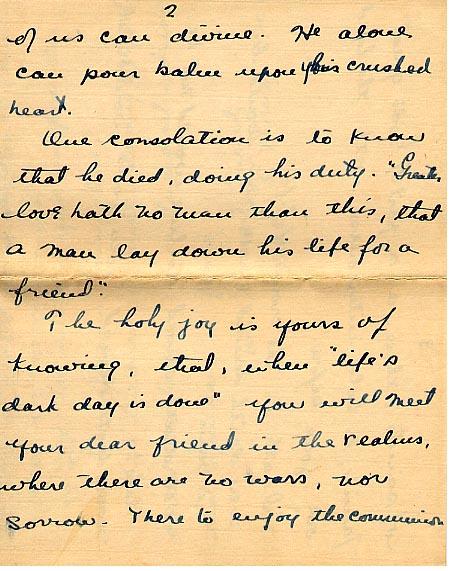 2
of us can divine. He alone
can pour balm upon this crushed
heart.
One consolation is to know
that he died, doing his duty. "Greater
love hath no man than this, that
a man lay down his life for a
friend."
The holy joy is yours of
knowing, that, when "life's
dark day is done" you will meet
your dear friend in the realms,
where there are no wars, nor
sorrow. There to enjoy the communion